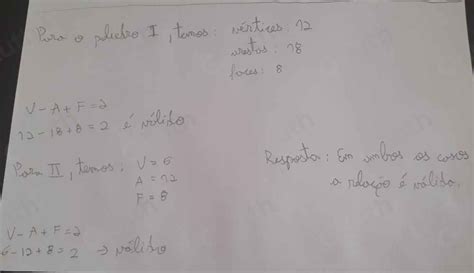 Para o poliedro I, temos: vértices: 12
arestas: 18
faces: 8
V - A + F = 2
12 - 18 + 8 = 2 é válido
Para II, temos: V = 6
A = 12
F = 8
Resposta: Em ambos os casos
a relação é válida.
V - A + F = 2
6 - 12 + 8 = 2 → válido